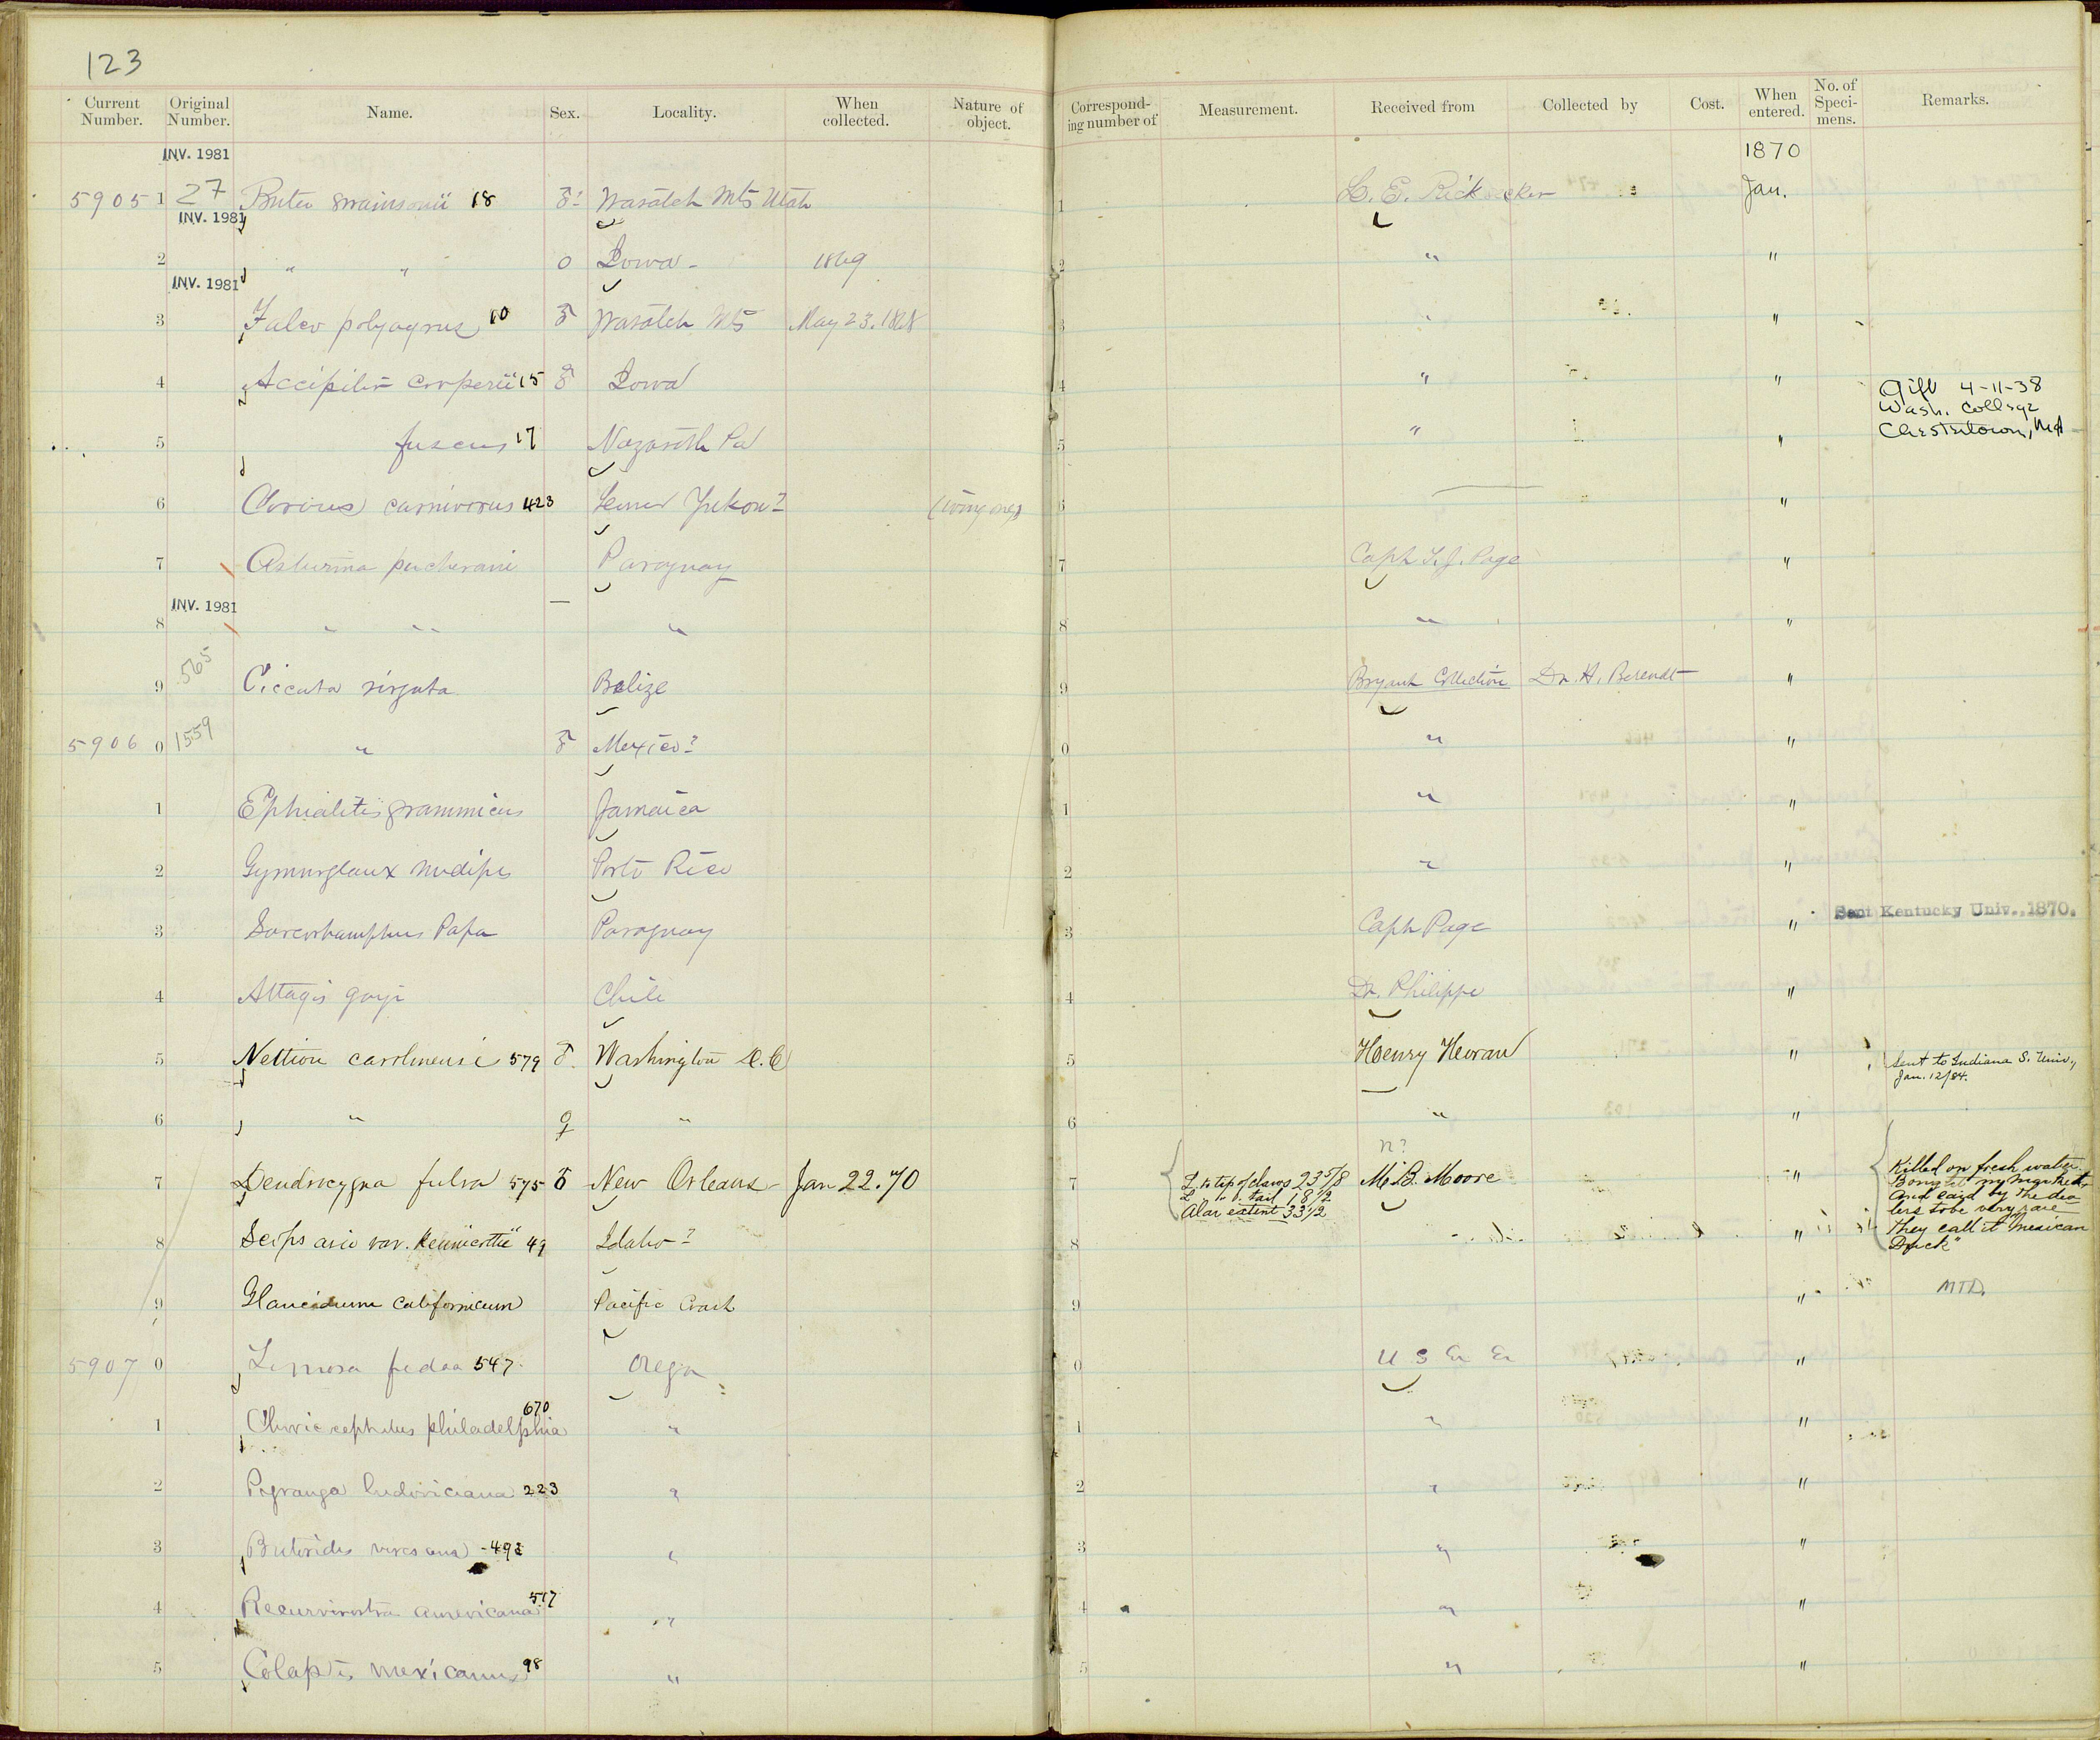 123
Current Number. Original Number. Name. Sex. Locality. When collected. Nature of object. Corresponding number of Measurement. Received from Collected by Cost. When entered. No. of Specimens. Remarks.
INV. 1981 1870
59051 27 Buteo swainsonii 18 ♂ Wasatch Mts Utah 1 L. E. Ricksecker Jan.
INV. 1981
2 " " O Iowa - 1869 2 " "
INV. 1981
3 Falco polyagrus 10 ♂ Wasatch Mts May 23. 1868 3 " "
4 Accipiter cooperii 15 ♂ Iowa 4 " " Gift 4-11-38
Wash. College
Chestertown, Md
5 fuscus 17 Nazareth Pa 5 " "
6 Corvus carnivorus 423 Lower Yukon? 6 "
7 Asturina pucherani Paraguay 7 Capt T. J. Page "
INV. 1981 —
8 " " " 8 " "
9 565 Ciccaba virgata Belize 9 Bryant Collection Dr. H. Berendt "
5906 0 1559 " ♂ Mexico? 0 " "
1 Ephialtes grammicus Jamaica 1 " "
2 Gymnoglaux nudipes Porto Rico 2 " "
3 Sarcorhamphus Papa Paraguay 3 Capt Page " Sent Kentucky Univ., 1870.
4 Attagis gayi Chile 4 Dr. Philippi "
5 Nettion carolinensis 579 ♂. Washington D.C 5 Henry " Sent to Indiana S. Univ.,
Jan. 12/84.
6 " ♀ " 6 " "
n?
7 Dendrocygna fulva 575 ♂ New Orleans - Jan 22. 70 7 L. to tip of claws 23 5/8 M. B. Moore "
L " " tail 18 1/2
Alar extent 33 1/2
Killed on fresh water
Bought in market
and said by the dea
lers to be very rare
They call it "Mexican
Duck"
8 Scops asio var. Kennicottii 49 Idaho? 8 "
9 Glaucidium californicum Pacific Coast 9 " MTD.
5907 0 Limosa fedoa 547 Oregn 0 U S Ex Ex "
1 Chroicocephalus philadelphia 670 " 1 " "
2 Pyranga ludoviciana 223 " 2 " "
3 Butorides virescens - 493 " 3 " "
4 Recurvirostra americana 517 " 4 " "
5 Colaptes mexicanus 98 " 5 " "